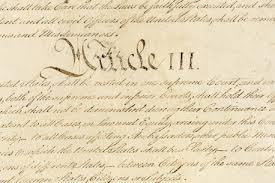 he shall take Care that the Laws be faithfully executed, and shall
and all civil Officers of the United States, shall be remov
and Misdemeanors.
Article III.
ited States, shall be vested in one supreme Court, and in
both of the supreme and inferior Courts, shall hold their
which shall not be diminished during their Continuance
tend to all Cases, in Law and Equity, arising under this
to all Cases affecting Ambassadors, other public Minis
to which the United States shall be a Party; to Contro
of different States, between Citizens of the same State
States, Citizens or Subjects.